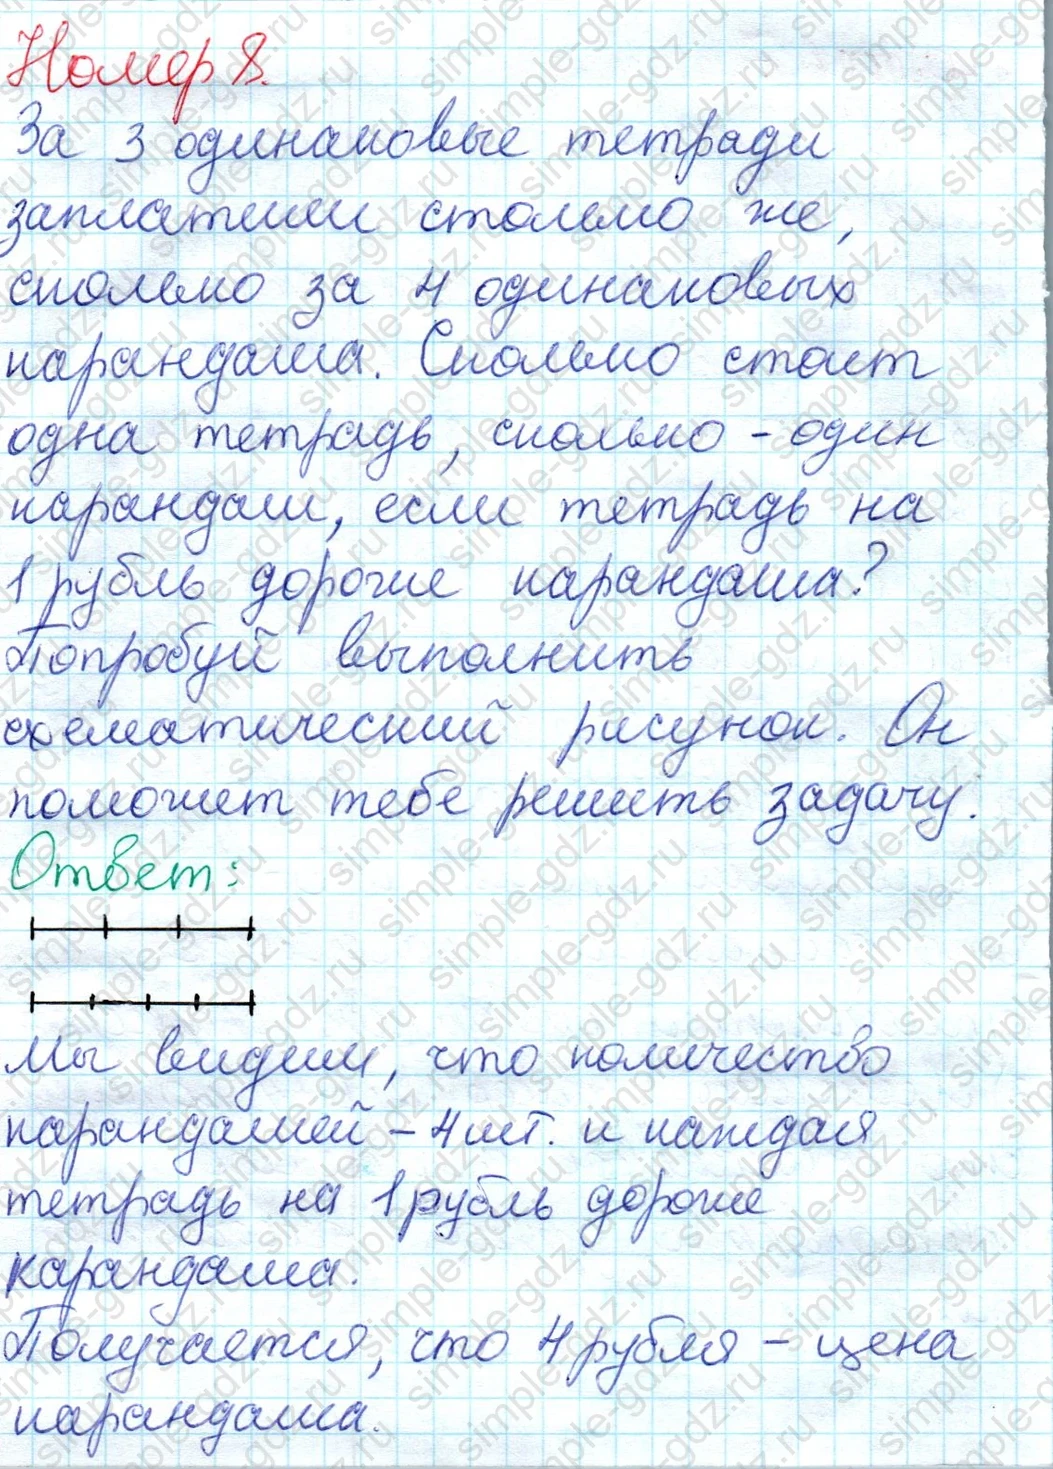 Номер 8.
За 3 одинаковые тетради
заплатили столько же,
сколько за 4 одинаковых
карандаша. Сколько стоит
одна тетрадь, сколько - один
карандаш, если тетрадь на
1 рубль дороже карандаша?
Попробуй выполнить
схематический рисунок. Он
поможет тебе решить задачу.
Ответ:
Мы видим, что количество
карандашей - 4 шт. и каждая
тетрадь на 1 рубль дороже
карандаша.
Получается, что 4 рубля - цена
карандаша.
simple-gdz.ru